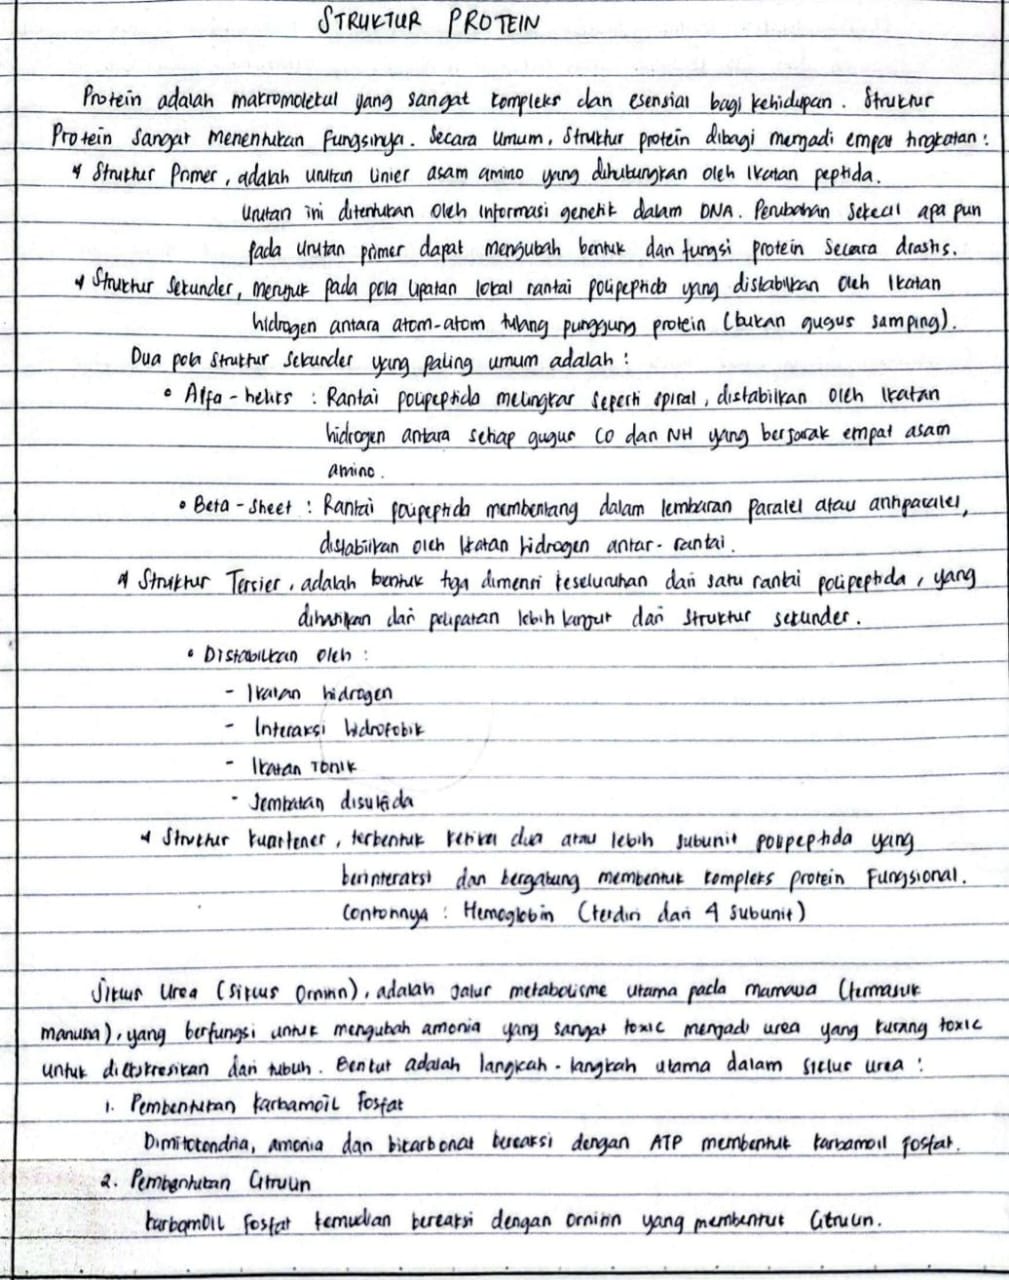 STRUKTUR PROTEIN
Protein adalah makromolekul yang sangat kompleks dan esensial bagi kehidupan. Struktur
Protein sangat menentukan fungsinya. Secara umum, struktur protein dibagi menjadi empat tingkatan :
* Struktur Primer, adalah urutan linier asam amino yang dihubungkan oleh ikatan peptida.
Urutan ini ditentukan oleh informasi genetik dalam DNA. Perubahan sekecil apa pun
pada urutan primer dapat mengubah bentuk dan fungsi protein secara drastis.
* Struktur Sekunder, merujuk pada pola lipatan lokal rantai polipeptida yang distabilkan oleh ikatan
hidrogen antara atom-atom tulang punggung protein (bukan gugus samping).
Dua pola struktur sekunder yang paling umum adalah :
• Alfa-heliks : Rantai polipeptida melingkar seperti spiral, distabilkan oleh ikatan
hidrogen antara setiap gugus CO dan NH yang berjarak empat asam
amino.
• Beta-sheet : Rantai polipeptida membentang dalam lembaran paralel atau antiparalel,
distabilkan oleh ikatan hidrogen antar-rantai.
* Struktur Tersier, adalah bentuk tiga dimensi keseluruhan dari satu rantai polipeptida, yang
dihasilkan dari pelipatan lebih lanjut dari struktur sekunder.
• Distabilkan oleh :
- Ikatan hidrogen
- Interaksi hidrofobik
- Ikatan ionik
- Jembatan disulfida
* Struktur kuartener, terbentuk ketika dua atau lebih subunit polipeptida yang
berinteraksi dan bergabung membentuk kompleks protein fungsional.
Contohnya : Hemoglobin (terdiri dari 4 subunit)
Siklus Urea (siklus Ornitin), adalah jalur metabolisme utama pada mamalia (termasuk
manusia), yang berfungsi untuk mengubah amonia yang sangat toxic menjadi urea yang kurang toxic
untuk diekskresikan dari tubuh. Berikut adalah langkah-langkah utama dalam siklus urea :
1. Pembentukan karbamoil fosfat
Dimitokondria, amonia dan bikarbonat bereaksi dengan ATP membentuk karbamoil fosfat.
2. Pembentukan Citrulin
karbamoil fosfat kemudian bereaksi dengan ornitin yang membentuk Citrulin.